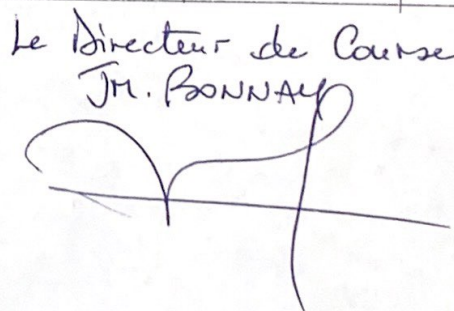 Le Directeur de Course
JM. BONNAY